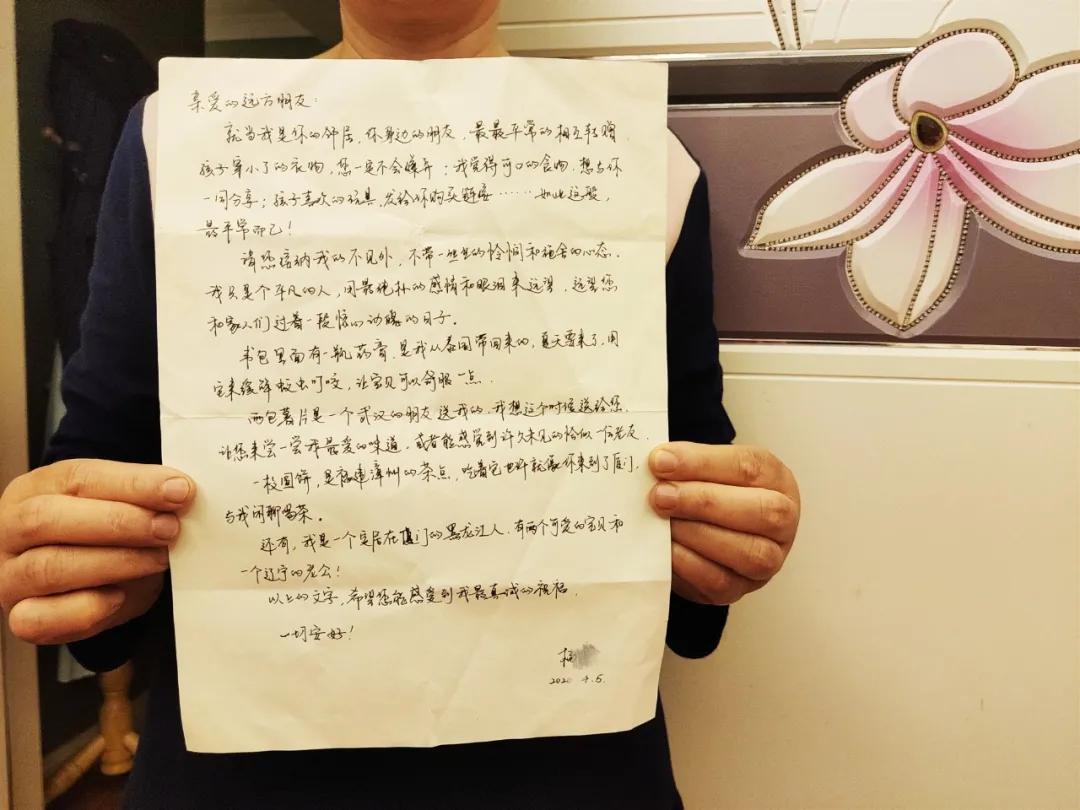 亲爱的远方朋友:
就当我是你的邻居,你身边的朋友,最最平常的相互转赠,
孩子穿小了的衣物,您一定不会嫌弃;我觉得可口的食物,想与你
一同分享;孩子喜欢的玩具,发给你购买链接……如此这般,
最平常而已!
请您接纳我的不见外,不带一丝的怜悯和施舍的心态。
我只是个平凡的人,用最纯朴的感情和眼泪来远望,远望您
和家人们过着一段惊心动魄的日子。
书包里面有一瓶药膏,是我从泰国带回来的,夏天要来了,用
它来缓解蚊虫叮咬,让宝贝可以舒服一点。
两包薯片是一个武汉的朋友送我的,我想这个时候送给您,
让您来尝一尝我最爱的味道,或者能感觉到许久未见的恰似一位老友。
一枚圆饼,是福建漳州的茶点,吃着它也许就像你来到了厦门,
与我闲聊喝茶。
还有,我是一个定居在厦门的黑龙江人,有两个可爱的宝贝和
一个辽宁的老公!
以上的文字,希望您能感受到我最真诚的祝福。
一切安好!
2020 4.5.